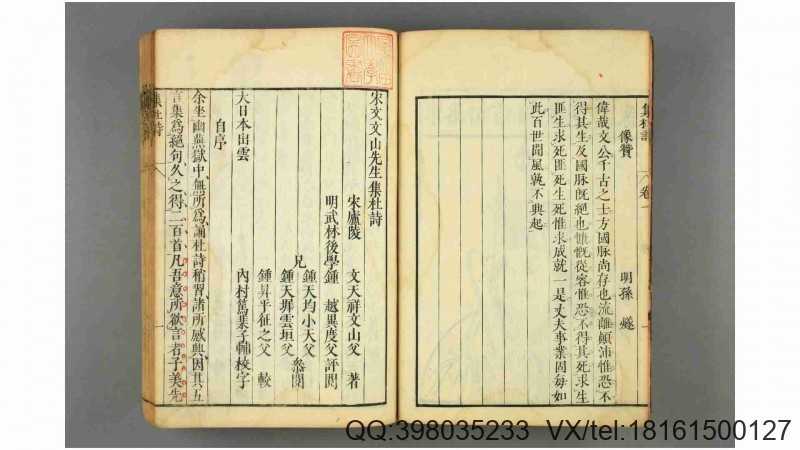 集杜詩
卷一
像贊
明孫 燧
偉哉文公千古之士方國脉尚存也流離顛沛惟恐不
得其生及國脉旣絕也慷慨從容惟恐不得其死求生
匪生求死匪死生死惟求成就一是丈夫事業固每如
此百世聞風孰不興起
宋文文山先生集杜詩
宋廬陵 文天祥文山父 著
明武林後學鍾 越異度父評閱
兄 鍾天均小天父
鍾天墀雲垣父 叅閱
鍾昇平征之父 較
大日本出雲 內村篤棐子輔校字
自序
余坐幽燕獄中無所爲誦杜詩稍習諸所感興因其五
言集爲絕句久之得二百首凡吾意所欲言者子美先
集杜詩
一
QQ:398035233 VX/tel:18161500127